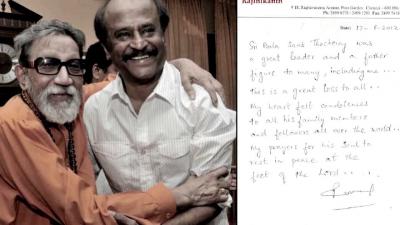 Rajinikanth
# 18, Raghavaveera Avenue, Poes Garden, Chennai - 600 086.
Date : 17-11-2012
Sri Bala Saheb Thackeray was
a great leader and a father
figure to many, including me...
This is a great loss to all..
My heart felt condolences
to all his family members
and followers all over the world..
My prayers for his soul to
rest in peace at the
feet of the Lord....